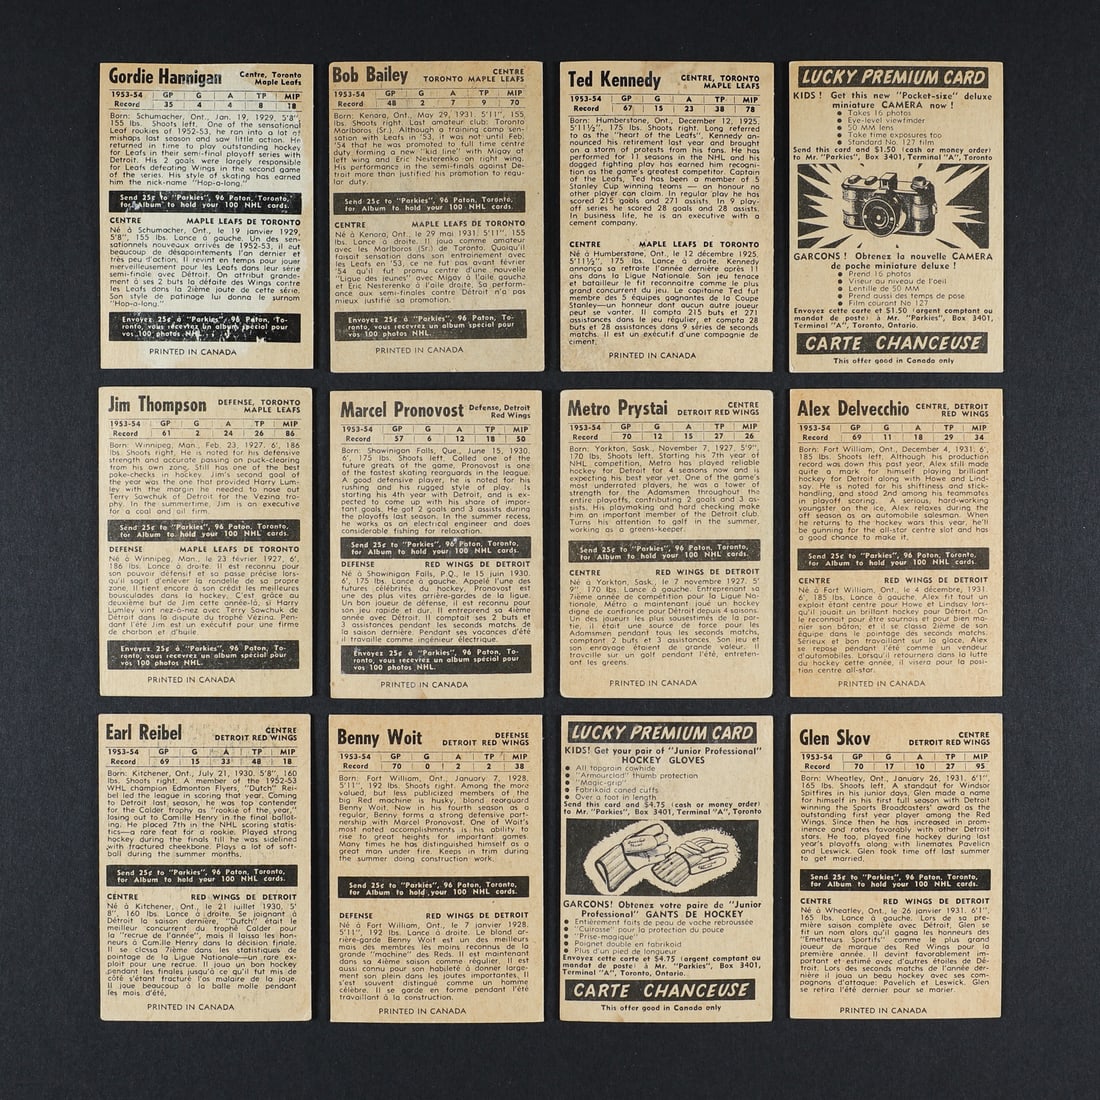 Gordie Hannigan
Centre, Toronto
Maple Leafs
1953-54 GP G A TP MIP
Record 35 4 4 8 18
Born: Schumacher, Ont., Jan. 19, 1929. 5'8",
155 lbs. Shoots left. One of the sensational
Leaf rookies of 1952-53, he ran into a lot of
mishaps last season and saw little action. He
returned in time to play outstanding hockey
for Leafs in their semi-final playoff series with
Detroit. His 2 goals were largely responsible
for Leafs defeating Wings in the second game
of the series. His style of skating has earned
him the nick-name "Hop-a-long."
Send 25¢ to "Parkies", 96 Paton, Toronto,
for Album to hold your 100 NHL cards.
CENTRE MAPLE LEAFS DE TORONTO
Né à Schumacher, Ont., le 19 janvier 1929,
5'8", 155 lbs. Lance à gauche. Un des sen-
sationnels nouveaux arrivés de 1952-53, il eut
beaucoup de désapointements l'an dernier et
très peu d'action. Il revint en temps pour jouer
merveilleusement pour les Leafs dans leur série
semi-finale avec Détroit. On attribue grande-
ment à ses 2 buts la défaite des Wings contre
les Leafs dans la 2ième joute de cette série.
Son style de patinage lui donna le surnom
"Hop-a-long."
Envoyez 25¢ à "Parkies", 96 Paton, To-
ronto, vous recevrez un album spécial pour
vos 100 photos NHL.
PRINTED IN CANADA
Bob Bailey
CENTRE
TORONTO MAPLE LEAFS
1953-54 GP G A TP MIP
Record 48 2 7 9 70
Born: Kenora, Ont., May 29, 1931. 5'11", 155,
lbs. Shoots right. Last amateur club: Toronto
Marlboros (Sr.). Although a training camp sen-
sation with Leafs in '53, it was not until Feb.
'54 that he was promoted to full time centre
duty forming a new "kid line" with Migay at
left wing and Eric Nesterenko on right wing.
His performance in the semi-finals against De-
troit more than justified his promotion to regu-
lar duty.
Send 25¢ to "Parkies", 96 Paton, Toronto,
for Album to hold your 100 NHL cards.
CENTRE MAPLE LEAFS DE TORONTO
Né à Kenora, Ont., le 29 mai 1931. 5'11", 155
lbs. Lance à droite. Il joua comme amateur
avec les Marlboros (Sr.) de Toronto. Quoiqu'il
faisait sensation dans son entrainement avec
les Leafs en '53, ce ne fut pas avant février
'54 qu'il fut promu centre d'une nouvelle
"Ligue des jeunes" avec Migay à l'aile gauche
et Eric Nesterenko à l'aile droite. Sa perform-
ance aux semi-finales contre Détroit n'a pas
mieux justifié sa promotion.
Envoyez 25¢ à "Parkies", 96 Paton, To-
ronto, vous recevrez un album spécial pour
vos 100 photos NHL.
PRINTED IN CANADA
Ted Kennedy
CENTRE, TORONTO
MAPLE LEAFS
1953-54 GP G A TP MIP
Record 67 15 23 38 78
Born: Humberstone, Ont., December 12, 1925.
5'11½", 175 lbs. Shoots right. Long referred
to as the "heart of the Leafs", Kennedy an-
nounced his retirement last year and brought
on a storm of protests from his fans. He has
performed for 11 seasons in the NHL and his
dogged fighting play has earned him recogni-
tion as the game's greatest competitor. Captain
of the Leafs, Ted has been a member of 5
Stanley Cup winning teams — an honour no
other player can claim. In regular play he has
scored 215 goals and 271 assists. In 9 play-
off series he scored 28 goals and 28 assists.
In business life, he is an executive with a
cement company.
CENTRE MAPLE LEAFS DE TORONTO
Né à Humberstone, Ont., le 12 décembre 1925.
5'11½", 175 lbs. Lance à droite. Kennedy
annonça sa retraite l'année dernière après 11
ans dans la Ligue Nationale. Son jeu tenace
et batailleur le fit reconnaitre comme le plus
grand concurrent du jeu. Le capitaine Ted fut
membre des 5 équipes gagnantes de la Coupe
Stanley—un honneur dont aucun autre joueur
peut se vanter. Il compta 215 buts et 271
assistances dans le jeu régulier, et compta 28
buts et 28 assistances dans 9 séries de seconds
matchs. Il est un exécutif d'une compagnie de
ciment.
PRINTED IN CANADA
LUCKY PREMIUM CARD
KIDS ! Get this new "Pocket-size" deluxe
miniature CAMERA now !
● Takes 16 photos
● Eye-level viewfinder
● 50 MM lens
● Take time exposures too
● Standard No. 127 film
Send this card and $1.50 (cash or money order)
to Mr. "Parkies", Box 3401, Terminal "A", Toronto
GARCONS ! Obtenez la nouvelle CAMERA
de poche miniature deluxe !
● Prend 16 photos
● Viseur au niveau de l'oeil
● Lentille de 50 MM
● Prend aussi des temps de pose
● Film courant No 127
Envoyez cette carte et $1.50 (argent comptant ou
mandat de poste) à Mr. "Parkies", Box 3401,
Terminal "A", Toronto, Ontario.
CARTE CHANCEUSE
This offer good in Canada only
Jim Thompson
DEFENSE, TORONTO
MAPLE LEAFS
1953-54 GP G A TP MIP
Record 61 2 24 26 86
Born: Winnipeg, Man., Feb. 23, 1927. 6', 186
lbs. Shoots right. He is noted for his defensive
strength and accurate passing on puck-clearing
from his own zone. Still has one of the best
poke-checks in hockey. Jim's second goal of
the year was the one that provided Harry Lum-
ley with the margin he needed to nose out
Terry Sawchuk of Detroit for the Vezina tro-
phy. In the summertime, Jim is an executive
for a coal and oil firm.
Send 25¢ to "Parkies", 96 Paton, Toronto,
for Album to hold your 100 NHL cards.
DEFENSE MAPLE LEAFS DE TORONTO
Né à Winnipeg, Man., le 23 février 1927. 6',
186 lbs. Lance à droite. Il est reconnu pour
son pouvoir défensif et sa passe précise lors-
qu'il sagit d'enlever la rondelle de sa propre
zone. Il tient encore à son crédit les meilleures
bousculades dans la hockey. C'est grâce au
deuxième but de Jim cette année-là, si Harry
Lumley vint nez-à-nez avec Terry Sawchuk de
Détroit dans la dispute du trophé Vézina. Pen-
dant l'été Jim est un exécutif pour une firme
de charbon et d'huile.
Envoyez 25¢ à "Parkies", 96 Paton, To-
ronto, vous recevrez un album spécial pour
vos 100 photos NHL.
PRINTED IN CANADA
Marcel Pronovost
Defense, Detroit
Red Wings
1953-54 GP G A TP MIP
Record 57 6 12 18 50
Born: Shawinigan Falls, Que., June 15, 1930.
6', 175 lbs. Shoots left. Called one of the
future greats of the game, Pronovost is one
of the fastest skating rearguards in the league.
A good defensive player, he is noted for his
rushing and his rugged style of play. Is
starting his 4th year with Detroit, and is ex-
pected to come up with his share of import-
ant goals. He got 2 goals and 3 assists during
the playoffs last season. In the summer recess,
he works as an electrical engineer and does
considerable fishing for relaxation.
Send 25¢ to "Parkies", 96 Paton, Toronto,
for Album to hold your 100 NHL cards.
DEFENSE RED WINGS DE DETROIT
Né à Shawinigan Falls, P.Q., le 15 juin 1930.
6', 175 lbs. Lance à gauche. Appelé l'une des
futures célébrités du hockey, Pronovost est
une des plus vites arrière-gardes de la ligue.
Un bon joueur de défense, il est reconnu pour
son jeu rapide et dur. Il entreprend sa 4ième
année avec Détroit. Il comptait ses 2 buts et
3 assistances pendant les seconds matchs de
la saison dernière. Pendant ses vacances d'été
il travaille comme ingénieur électrique.
Envoyez 25¢ à "Parkies", 96 Paton, To-
ronto, vous recevrez un album spécial pour
vos 100 photos NHL.
PRINTED IN CANADA
Metro Prystai
CENTRE
DETROIT RED WINGS
1953-54 GP G A TP MIP
Record 70 12 15 27 26
Born: Yorkton, Sask., November 7, 1927. 5'9",
170 lbs. Shoots left. Starting his 7th year of
NHL competition, Metro has played reliable
hockey for Detroit for 4 seasons now and is
expecting his best year yet. One of the game's
most underrated players, he was a tower of
strength for the Adamsmen throughout the
entire playoffs, contributing 2 goals and 3 as-
sists. His playmaking and hard checking make
him an important member of the Detroit club.
Turns his attention to golf in the summer,
working as a greens-keeper.
Send 25¢ to "Parkies", 96 Paton, Toronto,
for Album to hold your 100 NHL cards.
CENTRE RED WINGS DE DETROIT
Né à Yorkton, Sask., le 7 novembre 1927. 5'
9", 170 lbs. Lance à gauche. Entreprenant sa
7ième année de compétition pour la Ligue Na-
tionale, Métro a maintenant joué un hockey
digne de confiance pour Détroit depuis 4 saisons.
Un des joueurs les plus sousestimés de la par-
tie, il était une source de force pour les
Adamsmen pendant tous les seconds matchs,
comptant 2 buts et 3 assistances. Son jeu et
son enrayage étaient de grande valeur. Il
travaille sur un golf pendant l'été, entreten-
ant les greens.
PRINTED IN CANADA
Alex Delvecchio
CENTRE, DETROIT
RED WINGS
1953-54 GP G A TP MIP
Record 69 11 18 29 34
Born: Fort William, Ont., December 4, 1931; 6',
185 lbs. Shoots left. Although his production
record was down this past year, Alex still made
quite a mark for himself playing brilliant
hockey for Detroit along with Howe and Lind-
say. He is noted for his shiftiness and stick-
handling, and stood 2nd among his teammates
in playoff scoring. A serious, hard-working
youngster on the ice, Alex relaxes during the
off season as an automobile salesman. When
he returns to the hockey wars this year, he'll
be gunning for the all-star centre slot and has
a good chance to make it,
Send 25¢ to "Parkies", 96 Paton, Toronto,
for Album to hold your 100 NHL cards.
CENTRE RED WINGS DE DETROIT
Né à Fort William, Ont., le 4 décembre, 1931.
6', 185 lbs. Lance à gauche. Alex fit tout un
exploit étant centre pour Howe et Lindsay lors-
qu'il jouait un brillant hockey pour Détroit. On
le reconnait pour être sournois et pour bien ma-
nier son bâton; et il se classa 2ième de son
équipe dans le pointage des seconds matchs.
Sérieux et bon travaillant sur la glace, Alex
se repose pendant l'été comme un vendeur
d'automobiles. Lorsqu'il retournera dans la lutte
du hockey cette année, il visera pour la posi-
tion centre all-star.
PRINTED IN CANADA
Earl Reibel
CENTRE
DETROIT RED WINGS
1953-54 GP G A TP MIP
Record 69 15 33 48 18
Born: Kitchener, Ont., July 21, 1930. 5'8", 160
lbs. Shoots right. A member of the 1952-53
WHL champion Edmonton Flyers, "Dutch" Rei-
bel led the league in scoring that year. Coming
to Detroit last season, he was top contender
for the Calder trophy as "rookie of the year,"
losing out to Camille Henry in the final ballot-
ing. He placed 7th in the NHL scoring statis-
tics—a rare feat for a rookie. Played strong
hockey during the finals till he was sidelined
with fractured cheekbone. Plays a lot of soft-
ball during the summer months.
Send 25¢ to "Parkies", 96 Paton, Toronto,
for Album to hold your 100 NHL cards.
CENTRE RED WINGS DE DETROIT
Né à Kitchener, Ont., le 21 juillet 1930, 5'
8", 160 lbs. Lance à droite. Se joignant à
Détroit la saison dernière, "Dutch" était le
meilleur concurrent du trophé Calder pour
la "recrue de l'année", mais il laissa les hon-
neurs à Camille Henry dans la décision finale.
Il se classa 7ième dans les statistiques de
pointage de la Ligue Nationale—un rare ex-
ploit pour une recrue. Il joua un bon hockey
pendant les finales jusqu'à ce qu'il fut mis de
côté s'étant fracturé l'os malaire de la joue.
Il joue beaucoup à la balle molle pendant
les mois d'été.
PRINTED IN CANADA
Benny Woit
DEFENSE
DETROIT RED WINGS
1953-54 GP G A TP MIP
Record 70 0 2 2 38
Born: Fort William, Ont., January 7, 1928.
5'11", 192 lbs. Shoots right. Among the more
valued, but less publicized members of the
big Red machine is husky, blond rearguard
Benny Woit. Now in his 4th season as a
regular, Benny forms a strong defensive part-
nership with Marcel Pronovost. One of Woit's
most noted accomplishments is his ability to
rise to great heights for important games.
Many times he has distinguished himself as a
great man under fire. Keeps in trim during
the summer doing construction work.
Send 25¢ to "Parkies", 96 Paton, Toronto,
for Album to hold your 100 NHL cards.
DEFENSE RED WINGS DE DETROIT
Né à Fort William, Ont., le 7 janvier 1928.
5'11", 192 lbs. Lance à droite. Le blond ar-
rière-garde Benny Woit est un des meilleurs
mais des membres les moins reconnus de la
grande "machine" des Reds. Il est maintenant
dans sa 4ième saison comme régulier. Il est
aussi connu pour son habileté à donner large-
ment son plein dans les joutes importantes. Il
s'est souvent distingué comme un homme
célèbre. Il se garde en forme pendant l'été
travaillant à la construction.
PRINTED IN CANADA
LUCKY PREMIUM CARD
KIDS! Get your pair of "Junior Professional"
HOCKEY GLOVES
● All topgrain cowhide
● "Armourclad" thumb protection
● "Magic-grip"
● Fabrikoid caned cuffs
● Over a foot in length
Send this card and $4.75 (cash or money order)
to Mr. "Parkies", Box 3401, Terminal "A", Toronto
GARCONS! Obtenez votre paire de "Junior
Professional" GANTS DE HOCKEY
● Entièrement faits de peau de vache rebroussée
● "Cuirasse" pour la protection du pouce
● "Prise-magique"
● Poignet double en fabrikoid
● Plus d'un pied de longueur
Envoyez cette carte et $4.75 (argent comptant
ou mandat de poste) à Mr. "Parkies", Box 3401,
Terminal "A", Toronto, Ontario.
CARTE CHANCEUSE
This offer good in Canada only
Glen Skov
CENTRE
DETROIT RED WINGS
1953-54 GP G A TP MIP
Record 70 17 10 27 95
Born: Wheatley, Ont., January 26, 1931. 6'1",
165 lbs. Shoots left. A standout for Windsor
Spitfires in his junior days, Glen made a name
for himself in his first full season with Detroit
winning the Sports Broadcasters' award as the
outstanding first year player among the Red
Wings. Since then he has increased in prom-
inence and rates favorably with other Detroit
stars. He too, played fine hockey during last
year's playoffs along with linemates Pavelich
and Leswick. Glen took time off last summer
to get married.
Send 25¢ to "Parkies", 96 Paton, Toronto,
for Album to hold your 100 NHL cards.
CENTRE RED WINGS DE DETROIT
Né à Wheatley, Ont., le 26 janvier 1931. 6'1",
165 lbs. Lance à gauche. Lors de sa pre-
mière saison complète avec Détroit, Glen se
fit un nom alors qu'il gagna les honneurs des
"Emetteurs Sportifs" comme le plus grand
joueur de marque des Red Wings pour la
première année. Il devint favorablement im-
portant et estimé avec d'autres étoiles de Dé-
troit. Lors des seconds matchs de l'année der-
nière il joua un beau hockey avec ses com-
pagnons d'attaque: Pavelich et Leswick. Glen
se retira l'été dernier pour se marier.
PRINTED IN CANADA